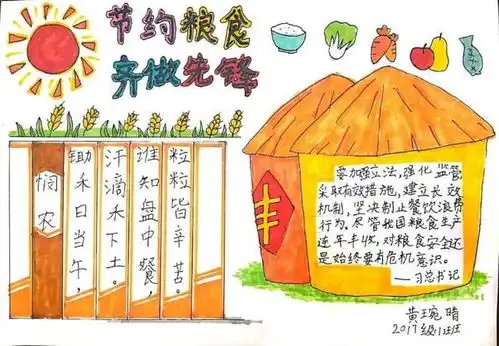 节约粮食
齐做先锋
悯农
锄禾日当午，
汗滴禾下土。
谁知盘中餐，
粒粒皆辛苦。
丰
要加强立法，强化监管
采取有效措施，建立长效
机制，坚决制止餐饮浪费
行为。尽管我国粮食生产
连年丰收，对粮食安全还
是始终要有危机意识。
——习总书记
黄琬晴
2017级(1)班